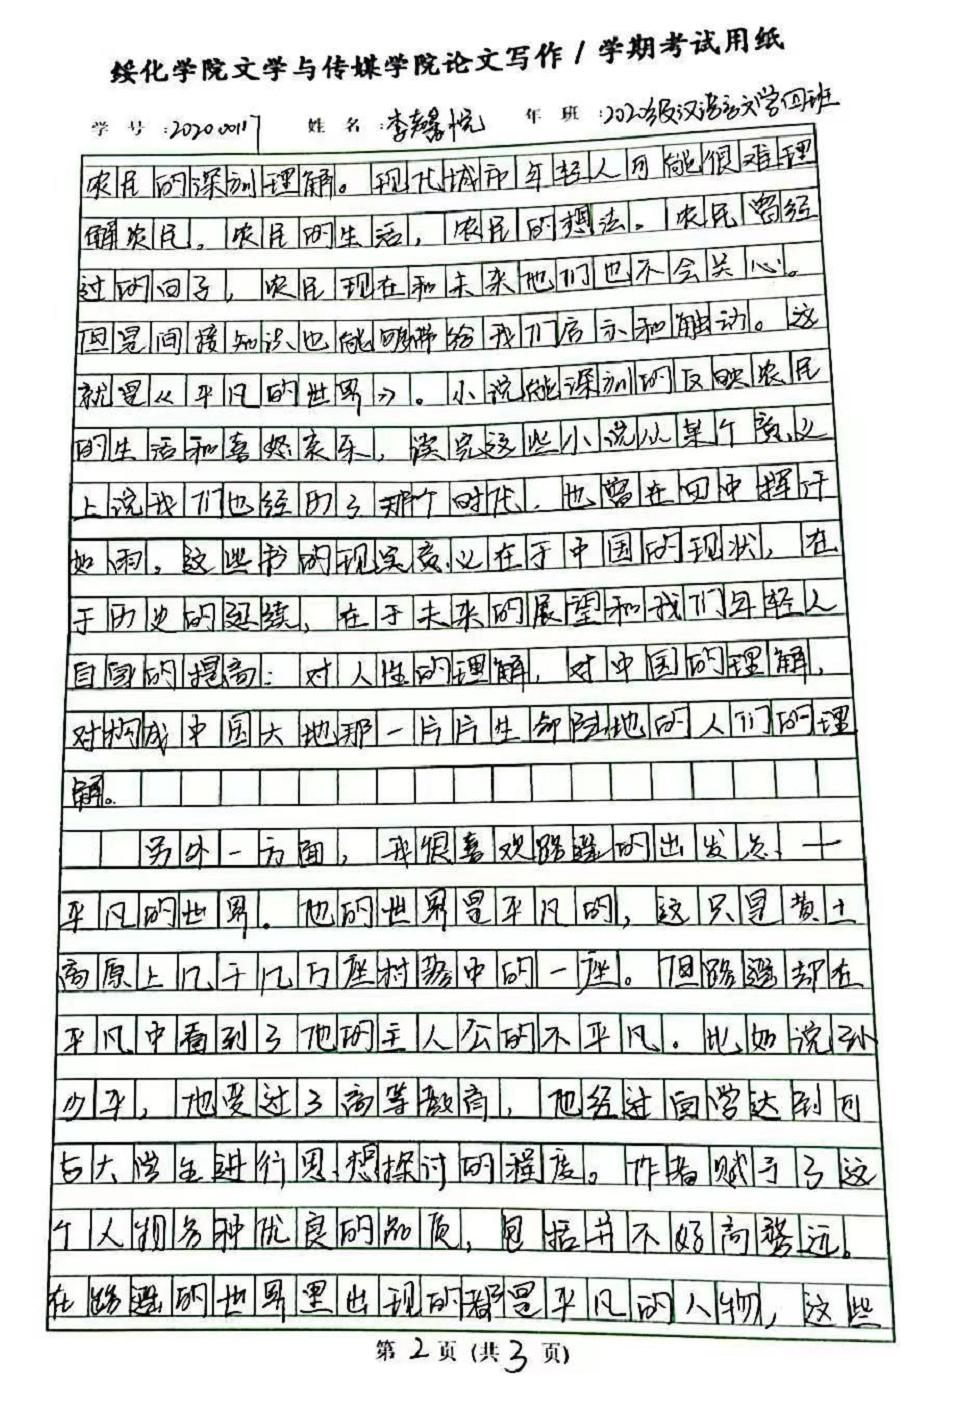 绥化学院文学与传媒学院论文写作/学期考试用纸
学号:202000117 姓名:李馨悦 年班:2020级汉语言文学四班
农民的深刻理解。现代城市年轻人可能很难理
解农民。农民的生活，农民的想法。农民曾经
过的日子，农民现在和未来他们也不会关心。
但是间接知识也能够带给我们启示和触动。这
就是《平凡的世界》。小说能深刻的反映农民
的生活和喜怒哀乐，读完这些小说从某个意义
上说我们也经历了那个时代，也曾在田中挥汗
如雨。这些书的现实意义在于中国的现状，在
于历史的延续，在于未来的展望和我们年轻人
自身的提高：对人性的理解，对中国的理解，
对构成中国大地那一片片生命陆地的人们的理
解。
另外一方面，我很喜欢路遥的出发点，一
平凡的世界。他的世界是平凡的，这只是黄土
高原上几千几万座村落中的一座。但路遥却在
平凡中看到了他的主人公的不平凡。比如说孙
少平，他受过了高等教高，他经过自学达到可
与大学生进行思想探讨的程度。作者赋予了这
个人物多种优良的品质，包括并不好高骛远。
在路遥的世界里出现的都是平凡的人物，这些
第2页(共3页)